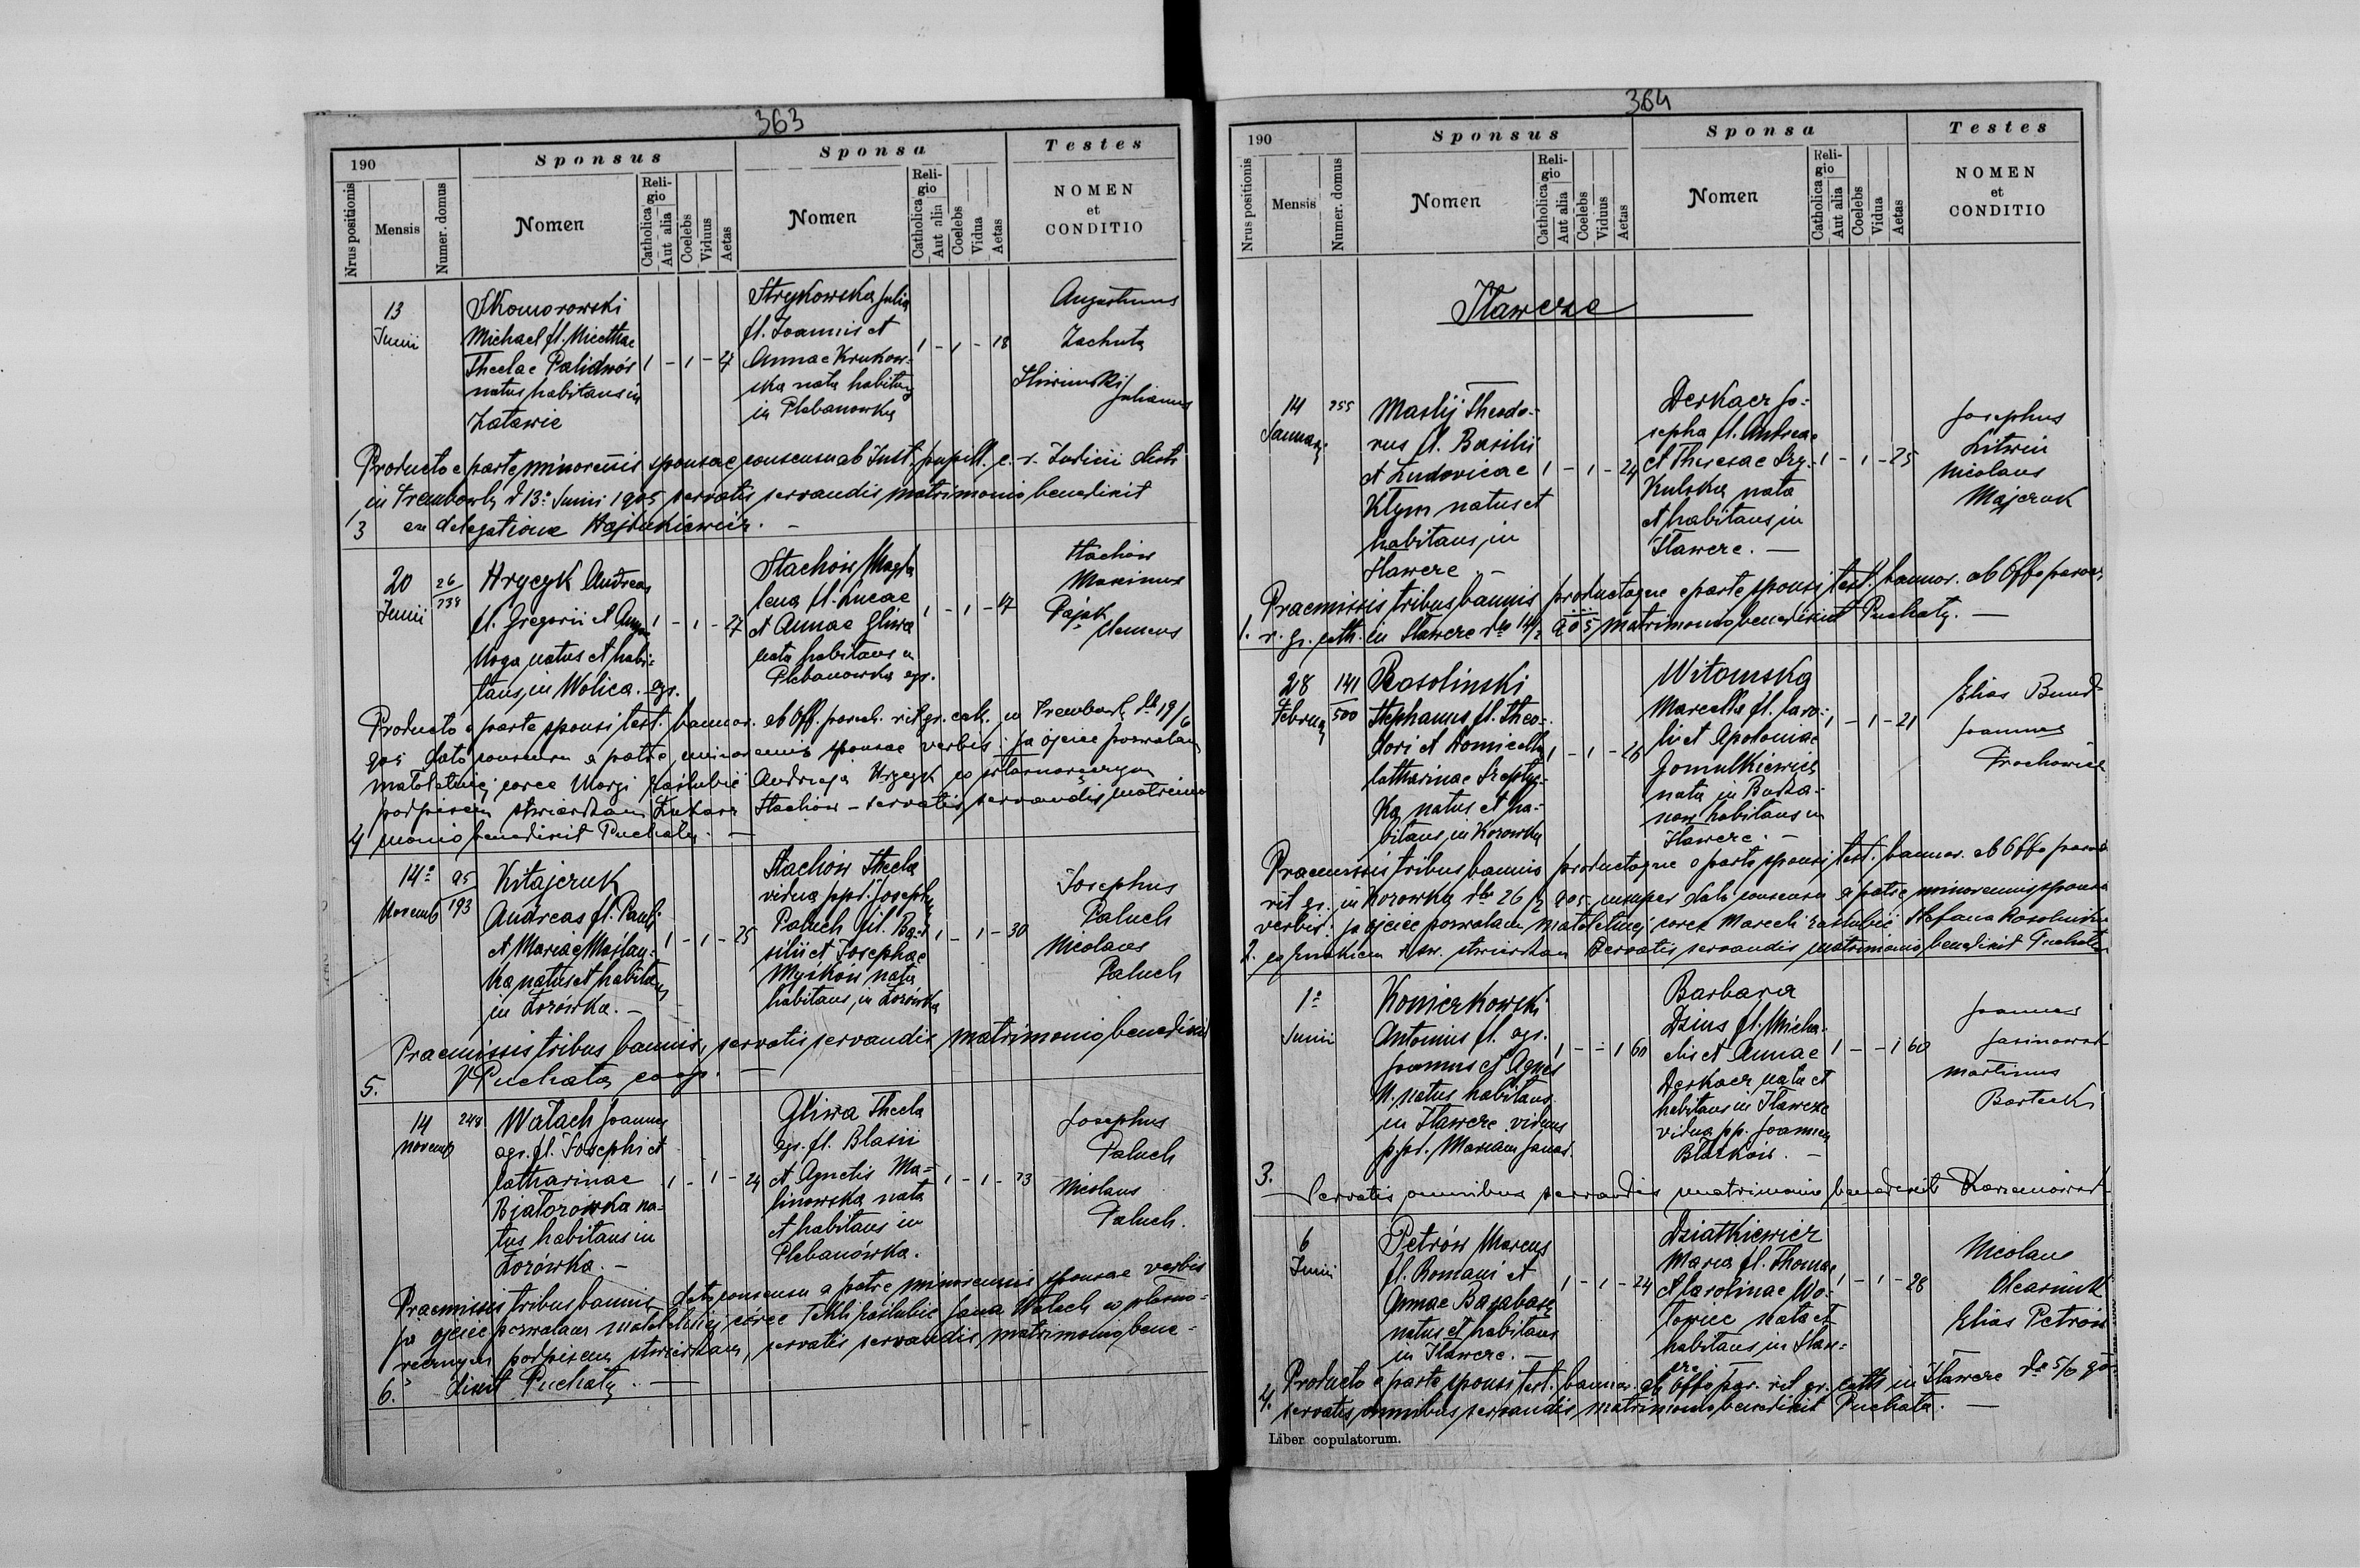 363
190
Sponsus
Sponsa
Testes
Nrus positionis
Mensis
Numer. domus
Nomen
Religio
Catholica
Aut alia
Coelebs
Viduus
Aetas
Nomen
Religio
Catholica
Aut alia
Coelebs
Vidua
Aetas
NOMEN
et
CONDITIO
13
Junii
Skomorowski
Michael fl.
Theclae Palidwór
natus habitans in
Załawie
1 - 1 - 27
Strykowska Julia
fl. Joannis et
Annae Krukow-
ska nata habitans
in Plebanowka
1 - 1 - 18
Augustinus
Zachuta
Julianus
Producto e parte minorennis sponsae consensu ab Inst. pupill. c. r. Judicii distr.
in Trembowla d 13º Junii 1905 servatis servandis matrimonio benedixit
3 ex delegatione Hajdukiewicz. -
20
Junii
26
738
Hrycyk Andreas
fl. Gregorii et Annae
Noga natus et habi-
tans in Wolica. agr.
1 - 1 - 27
Stachów Magda
lena fl. Lucae
et Annae Gliwa
nata habitans in
Plebanowka agr.
1 - 1 - 17
Stachów
Maximus
Pająk
Clemens
Producto e parte sponsi test. bannor. ab Off. paroch. rit gr. cath. in Trembowla dto 19/6
905 dato consensu a patre minorennis sponsae verbis: Ja ojciec pozwalam
małoletniej corce Margi zaślubić Andrzeja Hrycyk co własnoręcznym
podpisem stwierdzam Łukasz Stachów - servatis servandis matrimo
4 monio benedixit Puchała. -
14º
Novemb
95
193
Kitajczuk
Andreas fl. Pauli
et Mariae Maślan-
ka natus et habitans
in Zorówka. -
1 - 1 - 25
Stachów Thecla
vidua ppd. Josephum
Paluch fil. Ba-
silii et Josephae
Myśków nata
habitans in Zorówka
1 - 1 - 30
Josephus
Paluch
Nicolaus
Paluch
Praemissis tribus bannis, servatis servandis matrimonio benedixit
5. VPuchała coop. -
14
Novemb
248
Wałach Joannes
agr. fl. Josephi et
Catharinae
Białorowka na-
tus habitans in
Zorówka. -
1 - 1 - 24
Gliwa Thecla
agr. fl. Blasii
et Agnetis Ma-
linowska nata
et habitans in
Plebanówka.
1 - 1 - 23
Josephus
Paluch
Nicolaus
Paluch.
Praemissis tribus bannis, dato consensu a patre minorennis sponsae verbis
ja ojciec pozwalam małoletniej córce Tekli zaślubić Jana Wałach co własno-
ręcznym podpisem stwierdzam, servatis servandis matrimonio bene-
6. dixit Puchała. -
364
190
Sponsus
Sponsa
Testes
Nrus positionis
Mensis
Numer. domus
Nomen
Religio
Catholica
Aut alia
Coelebs
Viduus
Aetas
Nomen
Religio
Catholica
Aut alia
Coelebs
Vidua
Aetas
NOMEN
et
CONDITIO
Iławcze
14
Januarj
255
Maslij Theodo-
rus fl. Basilii
et Ludovicae
Klym natus et
habitans in
Iławcze -
1 - 1 - 24
Derkacz Jo-
sepha fl. Andreae
et Theresae
kulska nata
et habitans in
Iławcze. -
1 - 1 - 25
Josephus
Litwin
Nicolaus
Majcruk
Praemissis tribus bannis productoque e parte sponsi test. bannor. ab Offo paroch
1. r. gr. cath. in Iławcze dto 14/1 905 matrimonio benedixit Puchała. -
28
Februarj
141
500
Rosolinski
Stephanus fl. Theo-
dori et Domicella
Catharinae Szepty-
ka natus et ha-
bitans in Korowka
1 - 1 - 26
Witomska
Marcella fl. Caro-
li et Apoloniae
Gomulkiewicz
nata in
now habitans in
Iławcze. -
1 - 1 - 21
Elias Bund
Joannes
Prochowicz
Praemissis tribus bannis productoque e parte sponsi test. bannor. ab Offo paroch
rit gr. in Korowka dto 26/2 905, insuper dato consensu a patre minorennis sponsae
verbis: ja ojciec pozwalam małoletniej corce Marceli zaślubić Stefana Rosolinski
2. co znakiem + św. stwierdzam servatis servandis matrimonio benedixit Puchała
1º
Junii
Konierkowski
Antonius fl. agr.
Joannis et Agnes
N. natus habitans
in Iławcze viduus
p. pd. Mariam Janas.
1 - - 1 60
Barbara
Dzius fl. Micha-
elis et Annae
Derkacz nata et
habitans in Iławcze
vidua pp. Joannem
Błażków. -
1 - - 1 60
Joannes
Jasinowski
Martinus
Bartecki
3. Servatis omnibus servandis matrimonio benedixit
6
Junii
Petrów Marcus
fl. Romani et
Annae Barabasz
natus et habitans
in Iławcze. -
1 - 1 - 24
Dziatkiewicz
Maria fl. Thomae
et Carolinae Wo-
łowiec nata et
habitans in Iław-
cze
1 - 1 - 28
Nicolaus
Olearnik
Elias Petrów
Producto e parte sponsi test. bannor. ab Offo par. rit gr. cath. in Iławcze dto 5/6 905
4. servatis omnibus servandis matrimonio benedixit Puchała. -
Liber copulatorum.